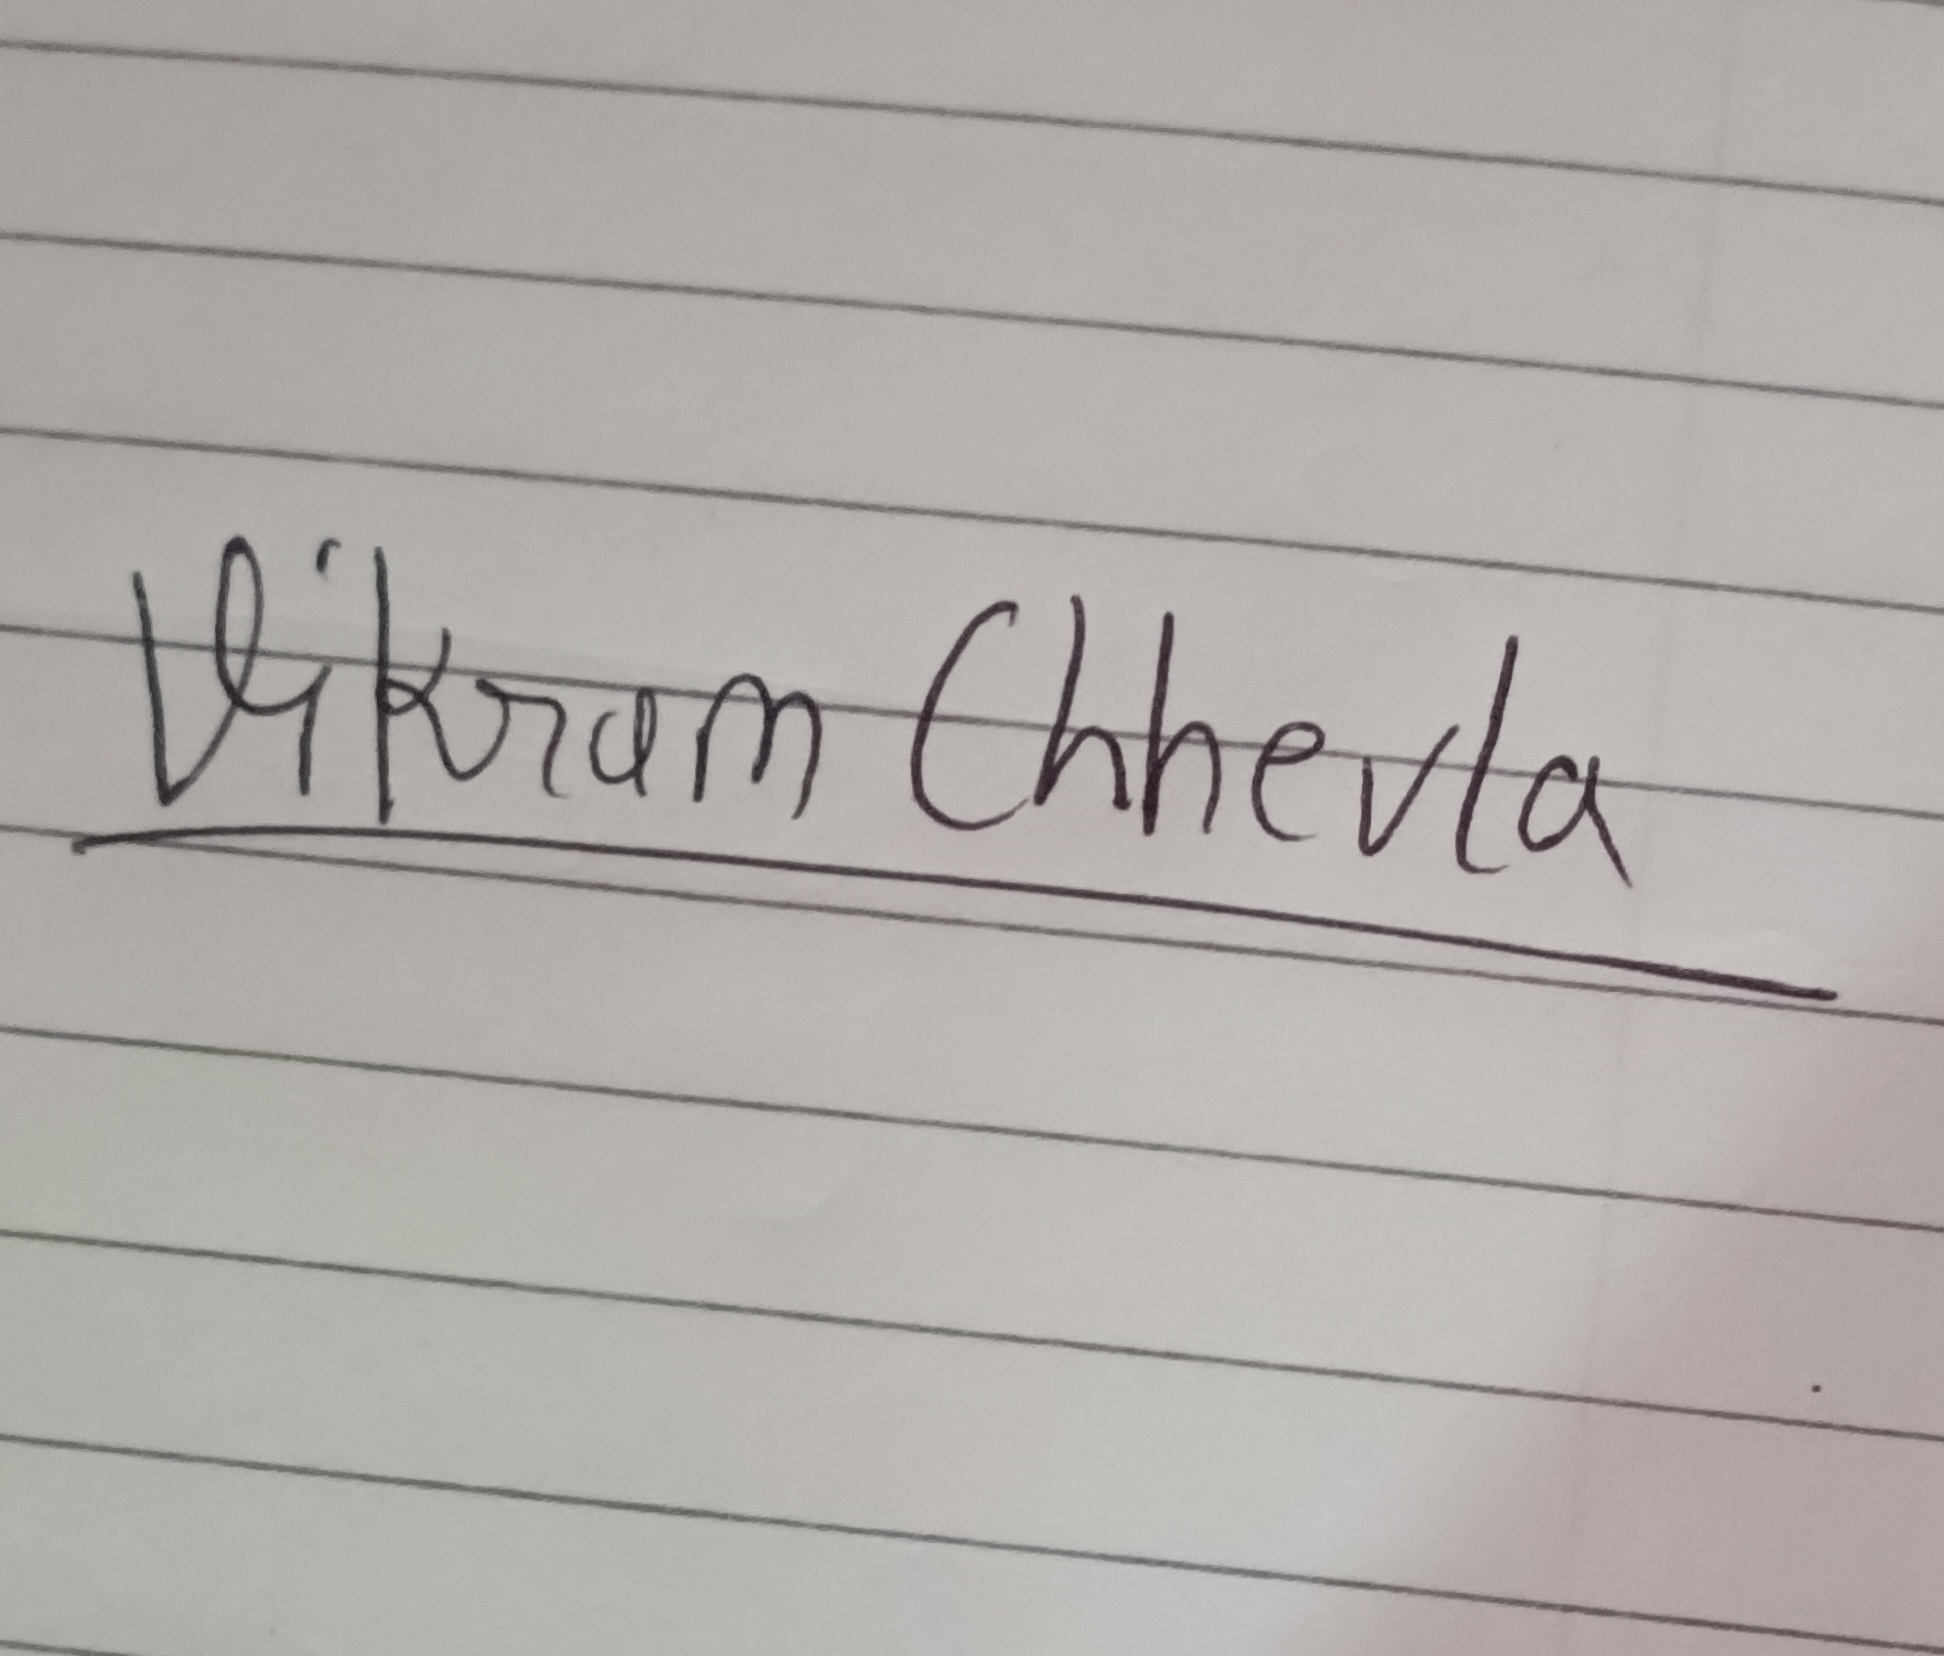 Vikram Chhevla